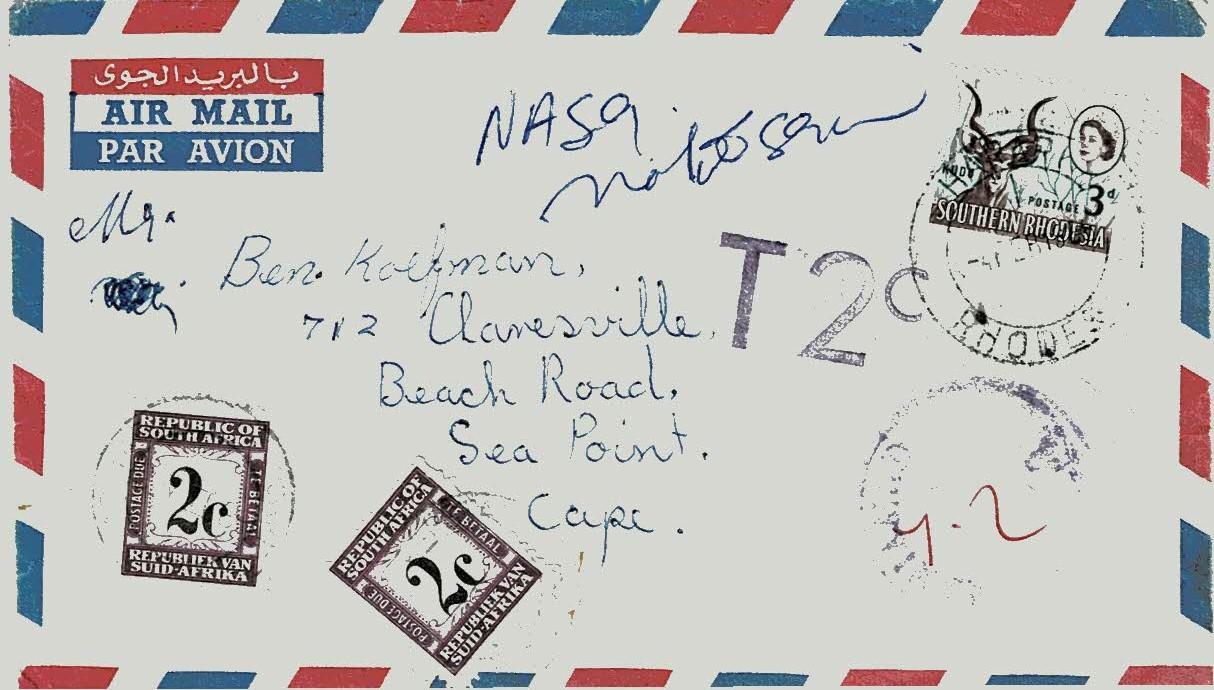 بالبريد الجوى
AIR MAIL
PAR AVION
KUDU
POSTAGE 3d
SOUTHERN RHODESIA
Mr.
Ben. Kolfman,
712 Claresville,
Beach Road,
Sea Point.
Cape.
T2c
RHODES
REPUBLIC OF
SOUTH AFRICA
POSTAGE DUE
2c
TE BETAAL
REPUBLIEK VAN
SUID-AFRIKA
REPUBLIC OF
SOUTH AFRICA
TE BETAAL
2c
POSTAGE DUE
REPUBLIEK VAN
SUID-AFRIKA